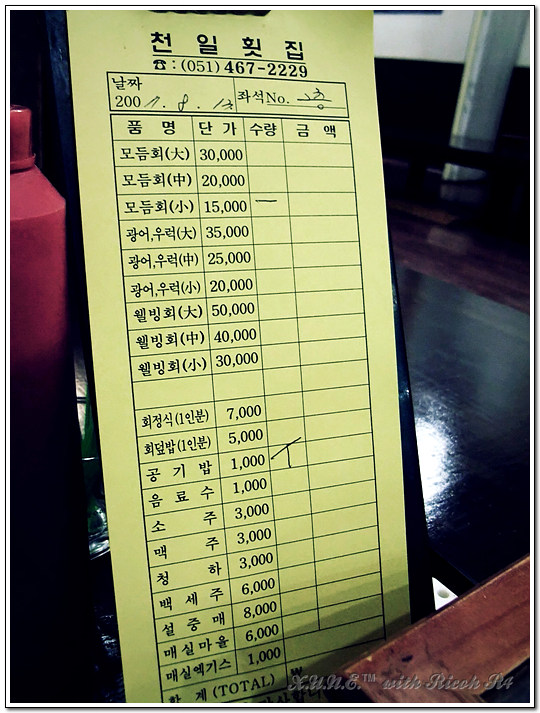 천 일 횟 집
☎ : (051) 467-2229
날짜
200 . 8 . 좌석No.
품 명 단 가 수량 금 액
모듬회(大) 30,000
모듬회(中) 20,000
모듬회(小) 15,000 一
광어,우럭(大) 35,000
광어,우럭(中) 25,000
광어,우럭(小) 20,000
웰빙회(大) 50,000
웰빙회(中) 40,000
웰빙회(小) 30,000
회정식(1인분) 7,000
회덮밥(1인분) 5,000
공 기 밥 1,000
음 료 수 1,000
소 주 3,000
맥 주 3,000
청 하 3,000
백 세 주 6,000
설 중 매 8,000
매실마을 6,000
매실엑기스 1,000
합 계 (TOTAL) ₩
X.U.N.E.™ with Ricoh R4